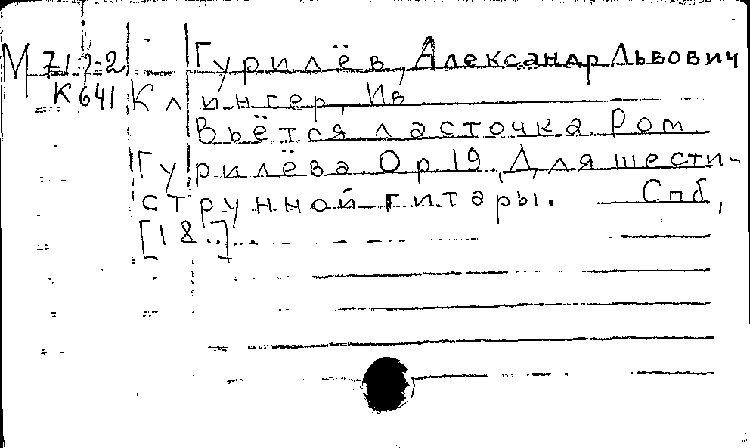 М 71.2-2 Гурилёв, Александр Львович
К 641 Клингер, Ив
Вьётся ласточка. Ром.
Гурилёва. Op 19. Для шести-
струнной гитары. Спб,
[18..]